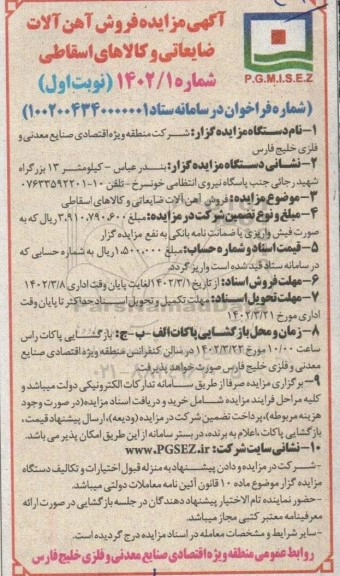 آگهی مزایده فروش آهن آلات
ضایعاتی و کالاهای اسقاطی
شماره ۱۴۰۲/۱ (نوبت اول)
P.G.M.I.S.E.Z
(شماره فراخوان در سامانه ستاد ۱۰۰۲۰۰۴۳۴۰۰۰۰۰۱)
۱- نام دستگاه مزایده گزار: شرکت منطقه ویژه اقتصادی صنایع معدنی و
فلزی خلیج فارس
۲- نشانی دستگاه مزایده گزار: بندرعباس - کیلومتر ۱۳ بزرگراه
شهید رجائی جنب پاسگاه نیروی انتظامی خونسرخ - تلفن ۱۰-۰۷۶۳۳۵۹۲۲۰۱
۳- موضوع مزایده: فروش آهن آلات ضایعاتی و کالاهای اسقاطی
۴- مبلغ و نوع تضمین شرکت در مزایده: مبلغ ۳.۹۱۰.۷۹۰.۶۰۰ ریال که به
صورت فیش واریزی یا ضمانت نامه بانکی به نفع مزایده گزار
۵- قیمت اسناد و شماره حساب: مبلغ ۱.۵۰۰.۰۰۰ ریال به شماره حسابی که
در سامانه ستاد قید شده است واریز گردد.
۶- مهلت فروش اسناد: از تاریخ ۱۴۰۲/۳/۱ لغایت پایان وقت اداری ۱۴۰۲/۳/۸
۷- مهلت تحویل اسناد: مهلت تکمیل و تحویل اسناد حداکثر تا پایان وقت
اداری مورخ ۱۴۰۲/۳/۲۱
۸- زمان و محل بازگشایی پاکات الف - ب - ج: بازگشایی پاکات راس
ساعت ۱۰/۰۰ مورخ ۱۴۰۲/۳/۲۲ در سالن کنفرانس منطقه ویژه اقتصادی صنایع
معدنی و فلزی خلیج فارس صورت خواهد پذیرفت.
۹- برگزاری مزایده صرفا از طریق سامانه تدارکات الکترونیکی دولت میباشد و
کلیه مراحل فرایند مزایده شامل خرید و دریافت اسناد مزایده (در صورت وجود
هزینه مربوطه)، پرداخت تضمین شرکت در مزایده (ودیعه)، ارسال پیشنهاد قیمت،
بازگشایی پاکات، اعلام به برنده، در بستر سامانه از این طریق امکان پذیر می باشد.
۱۰- نشانی سایت شرکت: www.PGSEZ.ir
- شرکت در مزایده و دادن پیشنهاد به منزله قبول اختیارات و تکالیف دستگاه
مزایده گزار موضوع ماده ۱۰ قانون آئین نامه معاملات دولتی میباشد.
- حضور نماینده تام الاختیار پیشنهاد دهندگان در جلسه بازگشایی در صورت ارائه
معرفینامه معتبر کتبی مجاز میباشد.
- سایر شرایط و مشخصات معامله در اسناد مزایده درج گردیده است.
روابط عمومی منطقه ویژه اقتصادی صنایع معدنی و فلزی خلیج فارس